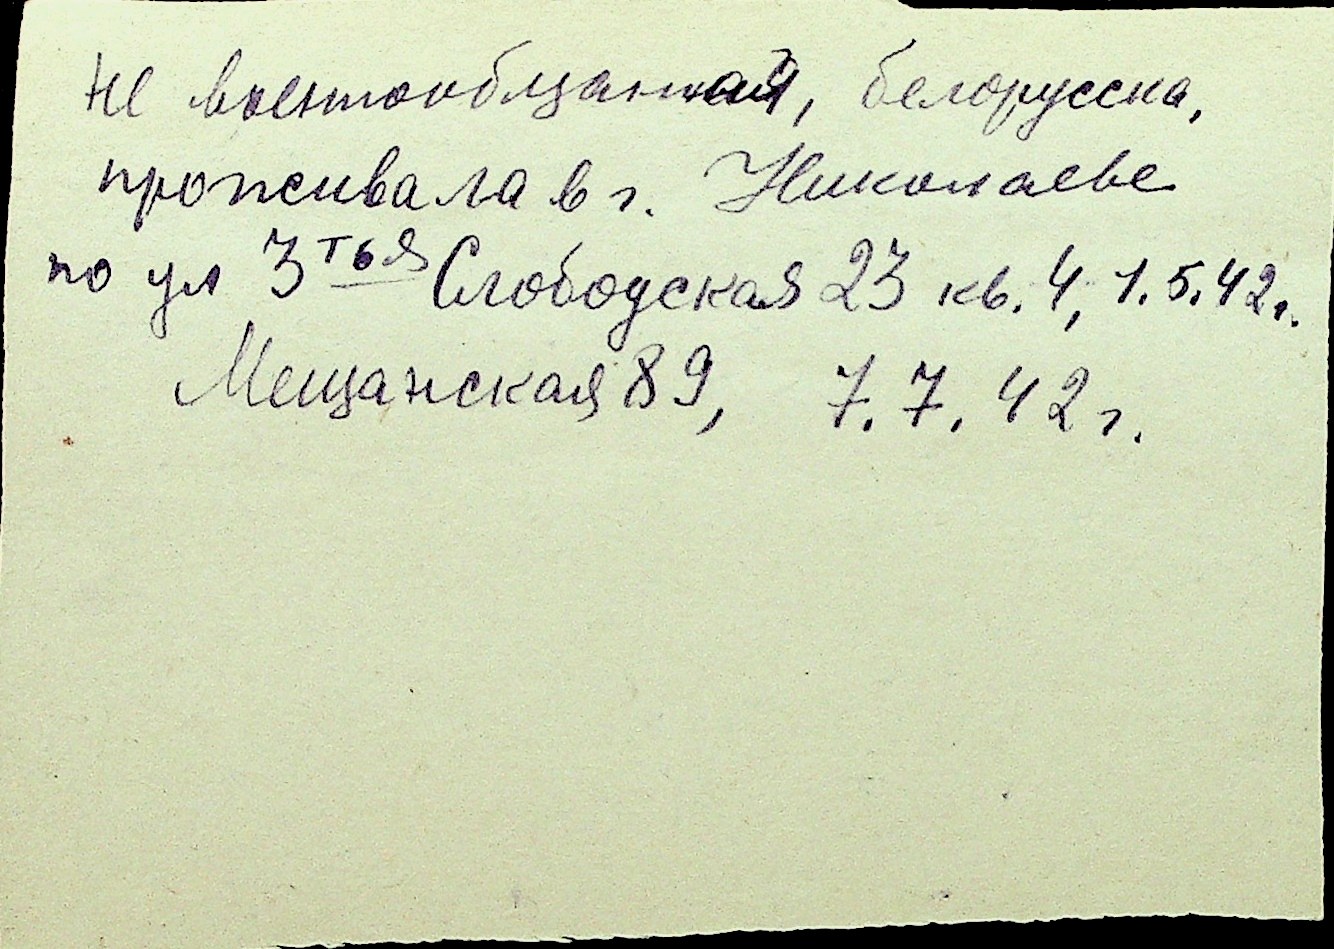 Не военнообязанная, белорусска,
проживала в г. Николаеве
по ул 3тья Слободская 23 кв. 4, 1.5.42г.
Мещанская 89, 7.7.42г.